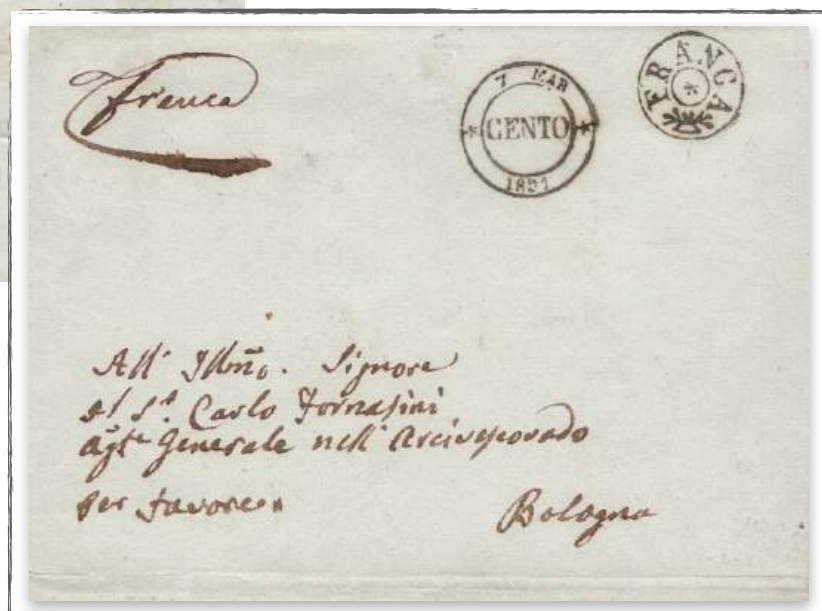 Franca
7 MAR
CENTO
FRANCA
All' Illmo. Signore
Il Sr. Carlo Fornasini
Agte Generale nell' Arcivescovado
per favore
Bologna